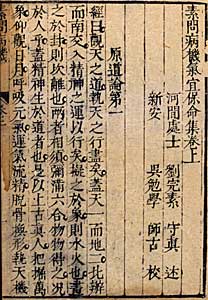 素問病機氣宜保命集卷上
河間處士 劉完素 守真 述
新安 吳勉學 師古 校
原道論第一
經曰觀天之道執天之行盡矣蓋天一而地二北辨
而南交入精神之運以行矣擬之於象則水火也畫
之於卦則坎離也兩者相須彌滿六合物物得之況
於人乎蓋精神生於道者也是以上古真人把握萬
象仰觀日月呼吸元氣運氣流精脫骨換形執天機